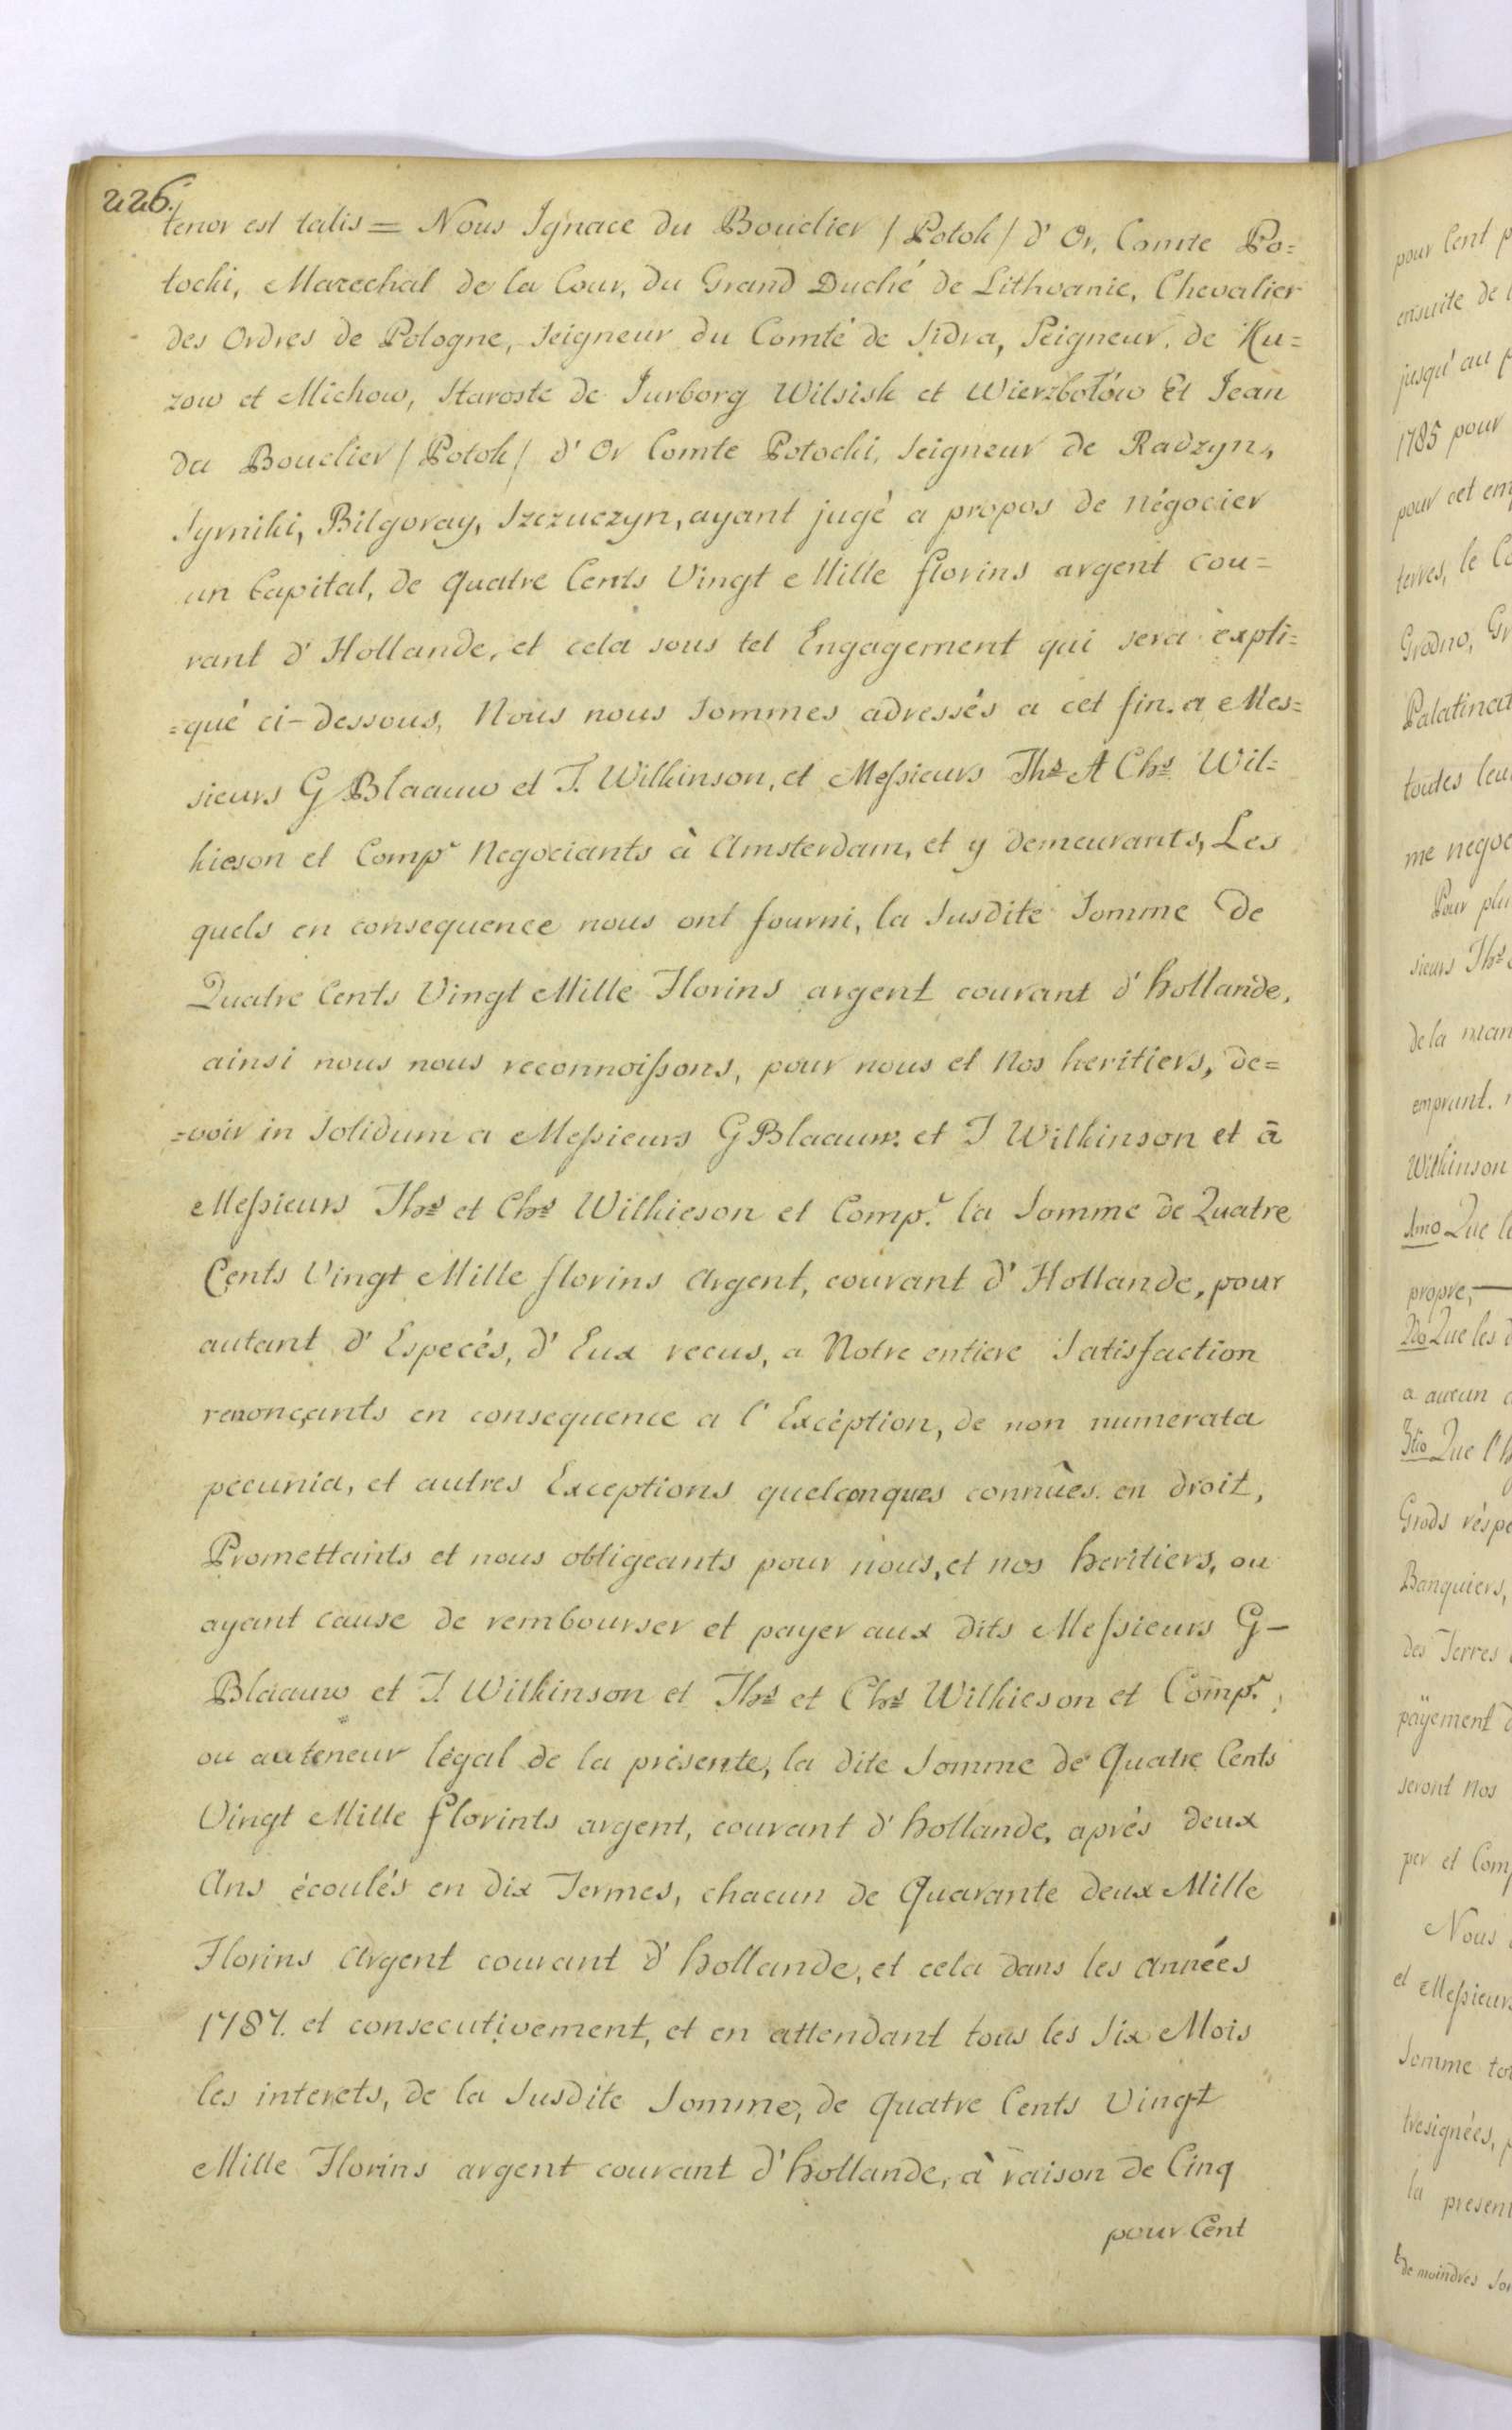 226.
tenor est talis = Nous Ignace du Bouclier / Potok / d' Or, Comte Po=
tocki, Marechal de la Cour, du Grand Duché de Lithvanie, Chevalier
des Ordres de Pologne, Seigneur du Comté de Sidra, Seigneur de Ku=
zow et Michow, Staroste de Jurborg Wilsisk et Wierzbołów Et Jean
du Bouclier / Potok / d' Or Comte Potocki, Seigneur de Radzyn,
Syrniki, Bilgoray, Szczuczyn, ayant jugé a propos de négocier
un Capital, de quatre Cents Vingt Mille florins argent cou=
rant d' Hollande, et cela sous tel Engagement qui sera expli=
=qué ci-dessous, Nous nous sommes adressés a cet fin. a Mes=
sieurs G Blaauw et J. Wilkinson, et Messieurs Ths A Chs Wil=
kieson et Compr Negociants à Amsterdam, et y demeurants, Les
quels en consequence nous ont fourni, la Susdite Somme de
Quatre Cents Vingt Mille Florins argent courant d' hollande,
ainsi nous nous reconnoissons, pour nous et Nos heritiers, de=
=voir in Solidum a Messieurs G Blaauw. et J Wilkinson et à
Messieurs Ths et Chs Wilkieson et Comp.r la Somme de Quatre
Cents Vingt Mille florins Argent, courant d' Hollande, pour
autant d' Especés, d' Eux recus, a Notre entiere Satisfaction
renonçants en consequence a l' Excéption, de non numerata
pecunia, et autres Exceptions quelconques connûes. en droit,
Promettants et nous obligeants pour nous, et nos heritiers, ou
ayant cause de rembourser et payer aux dits Messieurs G-
Blaauw et J. Wilkinson et Ths et Chs Wilkieson et Comp.r,
ou auteneur légal de la présente, la dite Somme de Quatre Cents
Vingt Mille florints argent, courant d' hollande, aprés deux
Ans écoulés en dix Termes, chacun de Quarante deux Mille
Florins Argent courant d' hollande, et cela dans les Années
1787. et consecutivement, et en attendant tous les Six Mois
les interets, de la Susdite Somme, de quatre Cents Vingt
Mille Florins argent courant d' hollande, à raison de Cinq
pour Cent
pour Cent
ensuite de
jusqu' au
1785 pour
pour cet
terres, le
Grodno,
Palatinat
toutes
me
Pour
sieurs Ths
de la
emprunt.
Wilkinson
1mo Que
propre,
2do Que les
a aucun
3tio Que
Grods
Banquiers,
des Terres
payement
seront Nos
per et
Nous
et Messieurs
Somme
la
de moindres